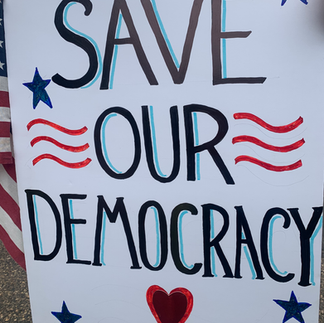 SAVE
OUR
DEMOCRACY